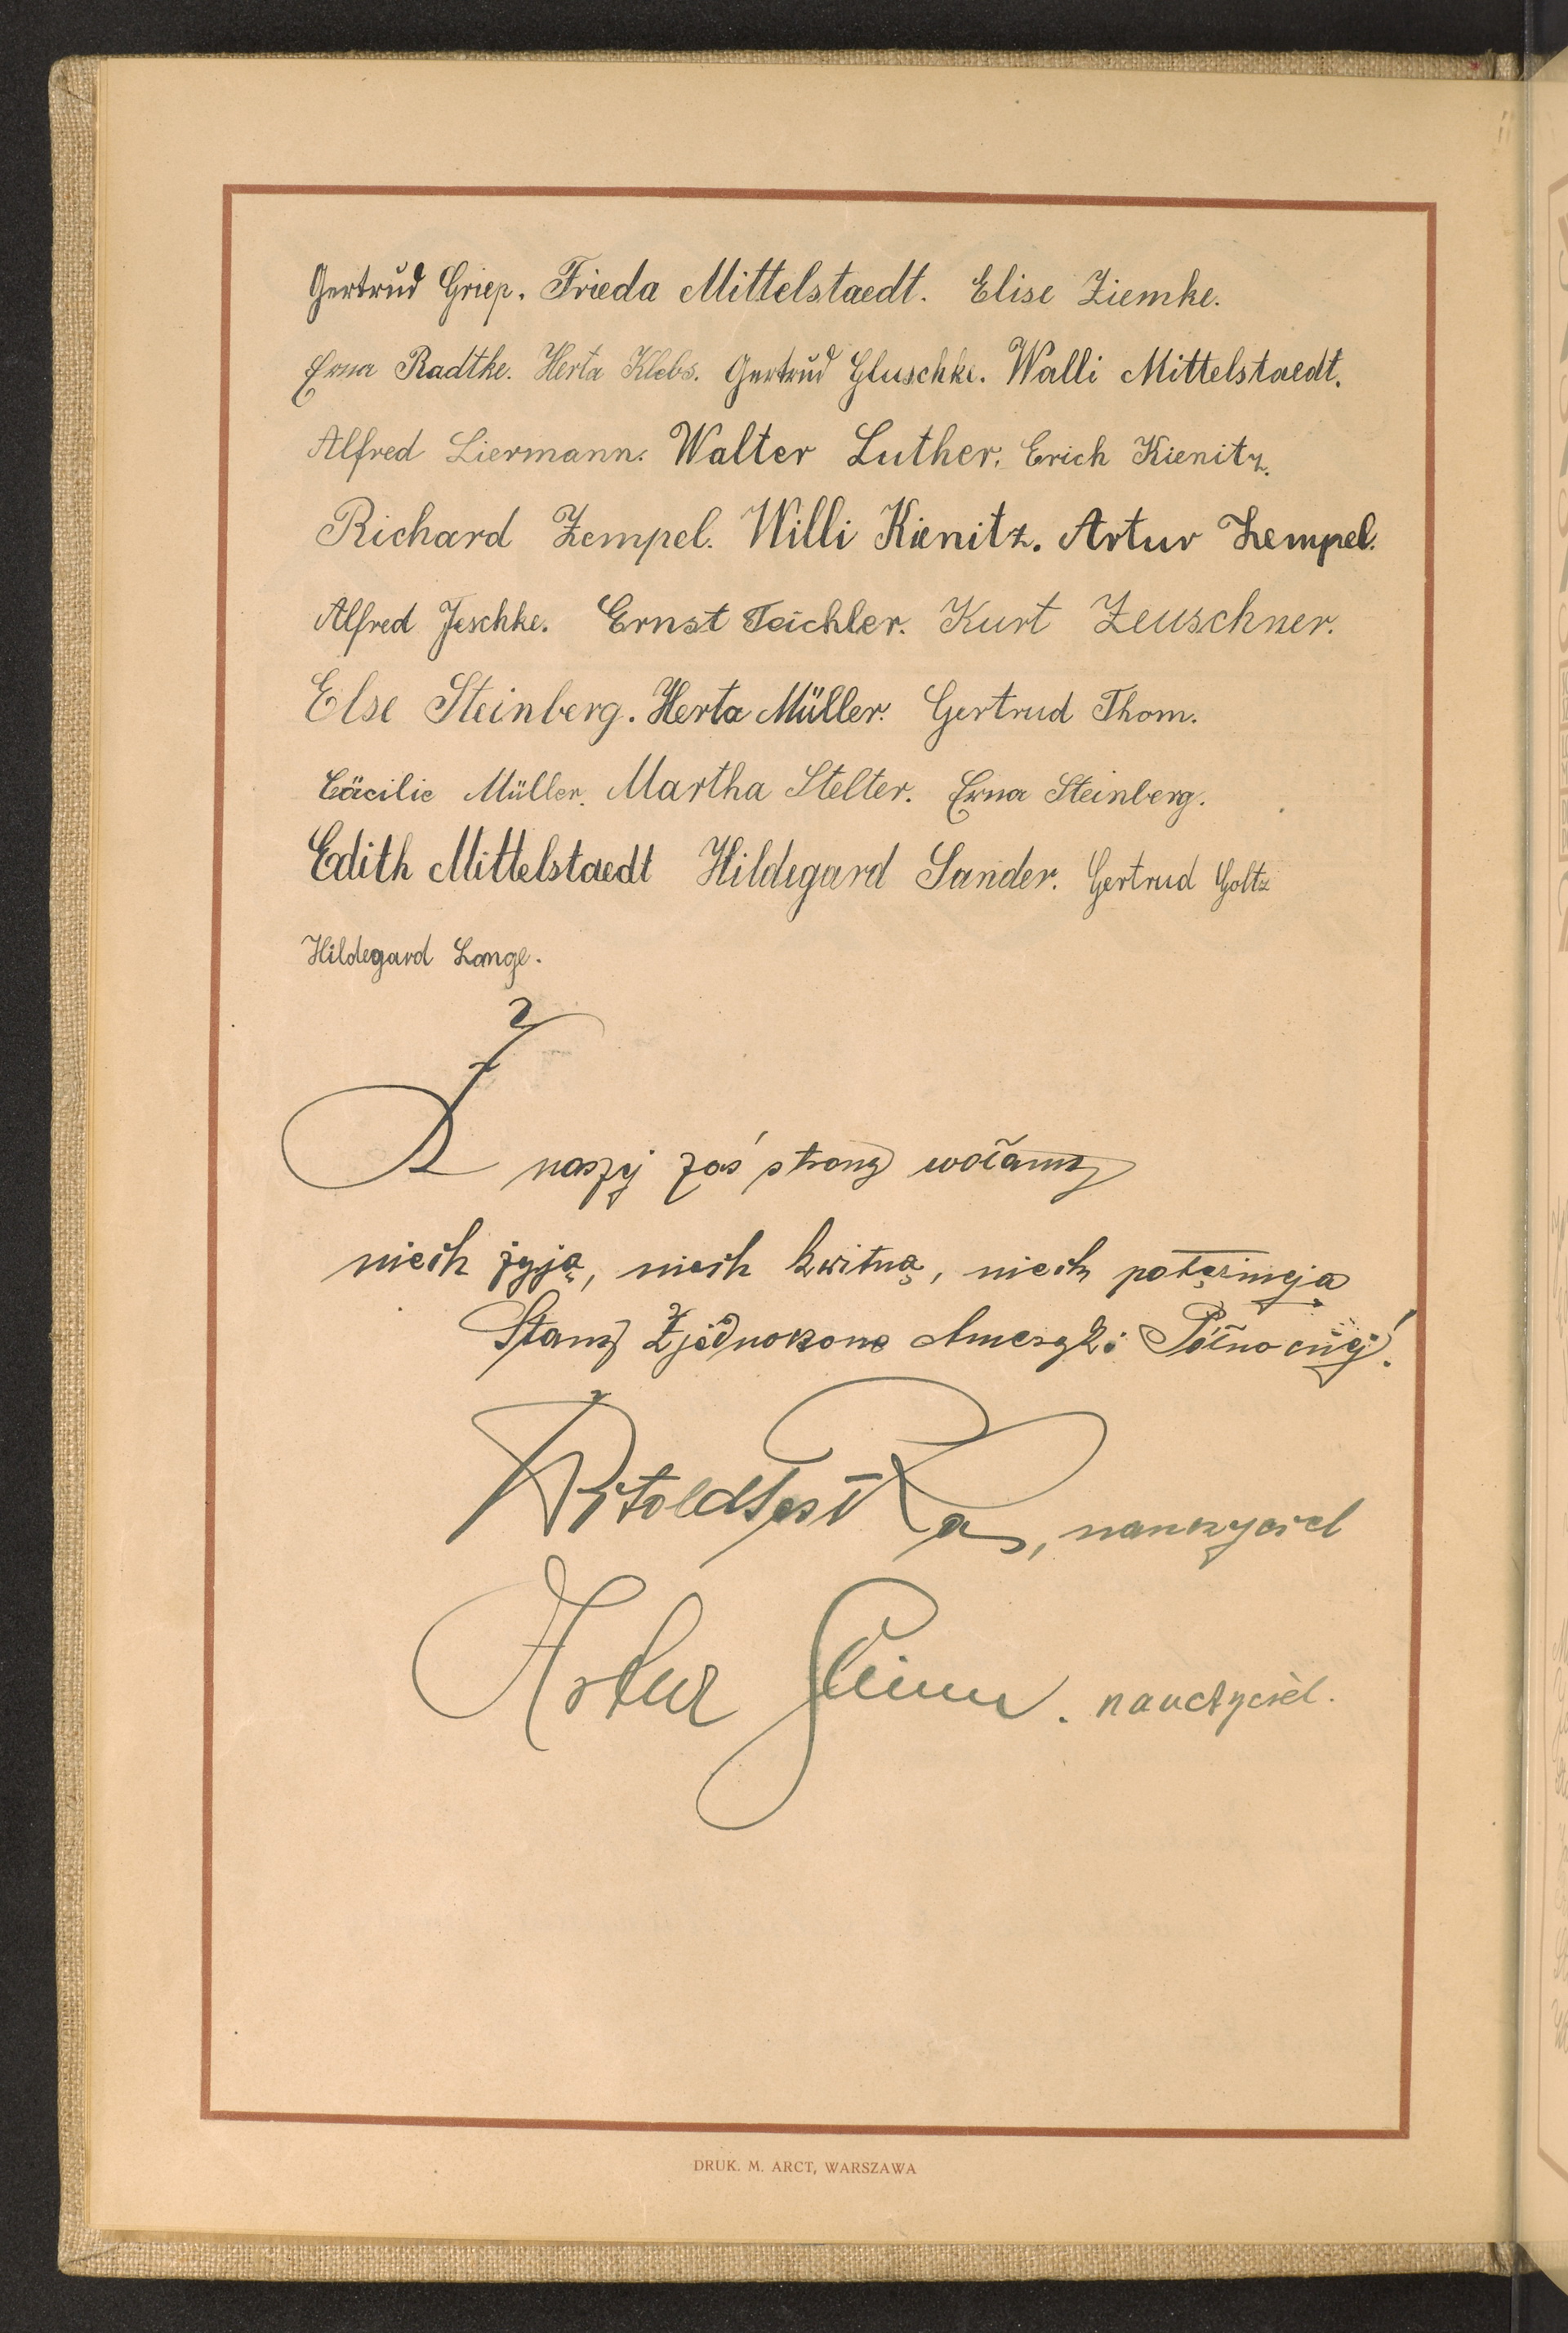 Gertrud Griep. Frieda Mittelstaedt. Elise Ziemke.
Erna Radtke. Herta Klebs. Gertrud Gluschke. Walli Mittelstaedt.
Alfred Liermann. Walter Luther. Erich Kienitz.
Richard Zempel. Willi Kienitz. Artur Zempel.
Alfred Jeschke. Ernst Teichler. Kurt Zeuschner.
Else Steinberg. Herta Müller. Gertrud Thom.
Cäcilie Müller. Martha Stelter. Erna Steinberg.
Edith Mittelstaedt Hildegard Sander. Gertrud Goltz
Hildegard Lange.
Z naszej zaś strony wołamy
niech żyją, niech kwitną, niech potężnieją
Stany Zjednoczone Ameryki Północnej!
Witold , nauczyciel
Artur . nauczyciel.
DRUK. M. ARCT, WARSZAWA